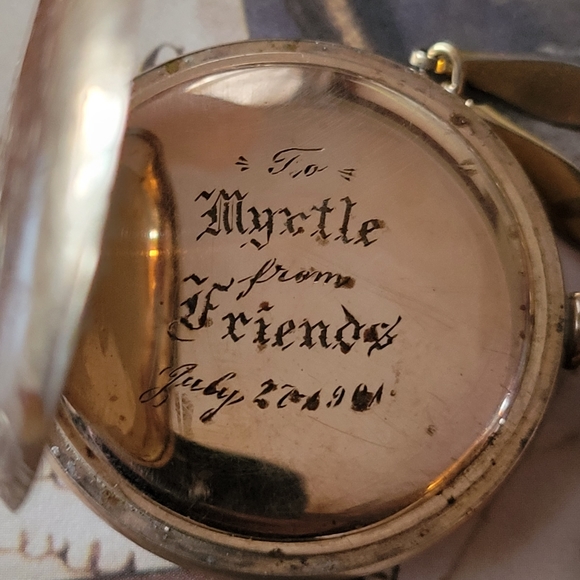 To
Myrtle
from
Friends
July 1901